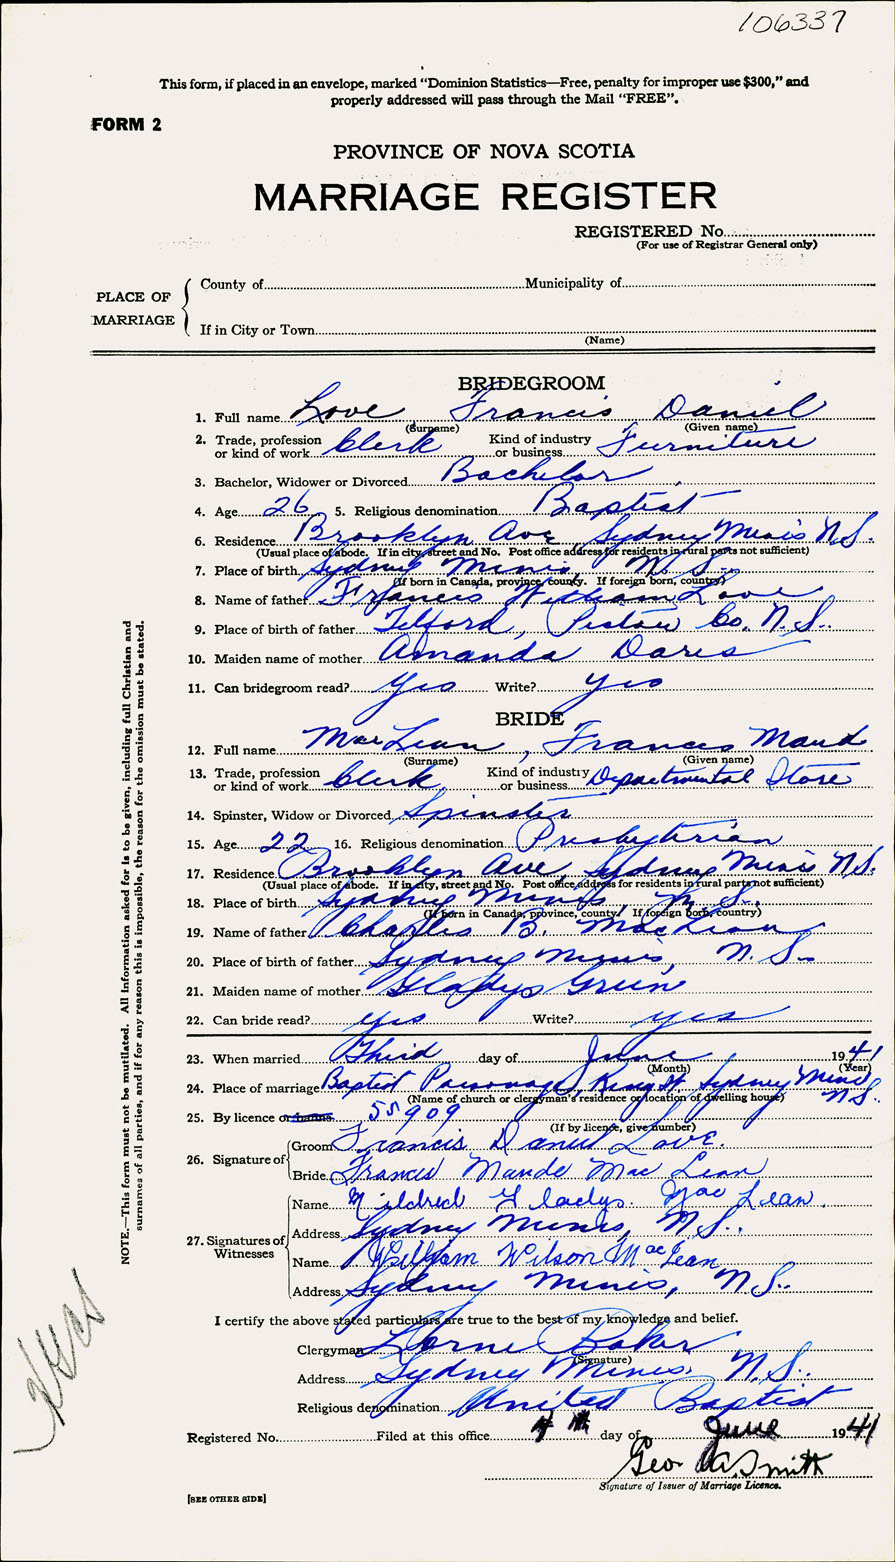 106337
This form, if placed in an envelope, marked "Dominion Statistics—Free, penalty for improper use $300," and
properly addressed will pass through the Mail "FREE".
FORM 2
PROVINCE OF NOVA SCOTIA
MARRIAGE REGISTER
REGISTERED No.
(For use of Registrar General only)
PLACE OF MARRIAGE
County of Municipality of
If in City or Town
(Name)
BRIDEGROOM
1. Full name Love, Francis Daniel
(Surname) (Given name)
2. Trade, profession or kind of work Clerk Kind of industry or business Furniture
3. Bachelor, Widower or Divorced Bachelor
4. Age 26 5. Religious denomination Baptist
6. Residence Brooklyn Ave Sydney Mines N.S.
(Usual place of abode. If in city, street and No. Post office address for residents in rural parts not sufficient)
7. Place of birth Sydney Mines, N.S.
(If born in Canada, province, county. If foreign born, country)
8. Name of father Francis William Love
9. Place of birth of father Telford, Pictou Co. N.S.
10. Maiden name of mother Amanda Dares
11. Can bridegroom read? Yes Write? Yes
BRIDE
12. Full name MacLean, Frances Maud
(Surname) (Given name)
13. Trade, profession or kind of work Clerk Kind of industry or business Departmental Store
14. Spinster, Widow or Divorced Spinster
15. Age 22 16. Religious denomination Presbyterian
17. Residence Brooklyn Ave, Sydney Mines N.S.
(Usual place of abode. If in city, street and No. Post office address for residents in rural parts not sufficient)
18. Place of birth Sydney Mines, N.S.
(If born in Canada, province, county. If foreign born, country)
19. Name of father Charles B. MacLean
20. Place of birth of father Sydney Mines, N.S.
21. Maiden name of mother Gladys Green
22. Can bride read? yes Write? yes
23. When married Third day of June 1941
(Month) (Year)
24. Place of marriage Baptist Parsonage, King St Sydney Mines N.S.
(Name of church or clergyman's residence or location of dwelling house)
25. By licence or banns 55909
(If by licence, give number)
26. Signature of Groom Francis Daniel Love.
Bride Frances Maude MacLean
27. Signatures of Witnesses Name Mildred Gladys MacLean.
Address Sydney Mines, N.S.
Name William Wilson MacLean
Address Sydney Mines, N.S.
I certify the above stated particulars are true to the best of my knowledge and belief.
Clergyman Lorne Baker
(Signature)
Address Sydney Mines, N.S.
Religious denomination United Baptist
Registered No. Filed at this office 4th day of June 1941
Geo A. Smith
Signature of Issuer of Marriage Licence.
[SEE OTHER SIDE]
NOTE.—This form must not be mutilated. All information asked for is to be given, including full Christian and
surnames of all parties, and if for any reason this is impossible, the reason for the omission must be stated.